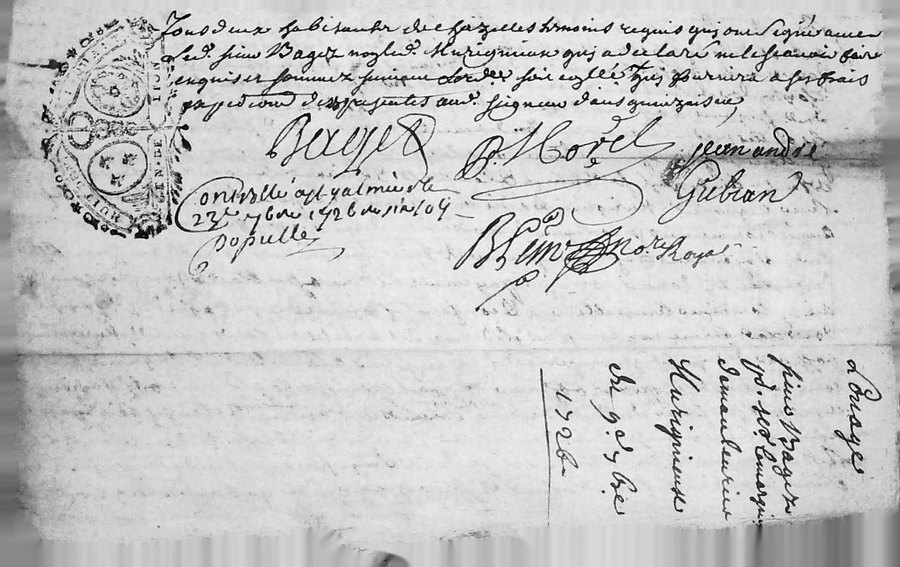 Tous deux habitants de Chazelles temoins requis qui ont signé avec
led. sieur Bages non led. Murigneux qui a declaré ne le scavoir faire
enquis et sommez suivant Lordre soit cellée qui fournira a ses frais
expedition des presentes aud. seigneur dans quinzaine
Bages
Morel
jean andré
Gubian
Controllé a St galmier le
23e 7bre 1726
Populle
nore Royal
GEN DE LION
Louage
sieur Bages
demandeurier
Murigneux
du 9e 7bre
1726